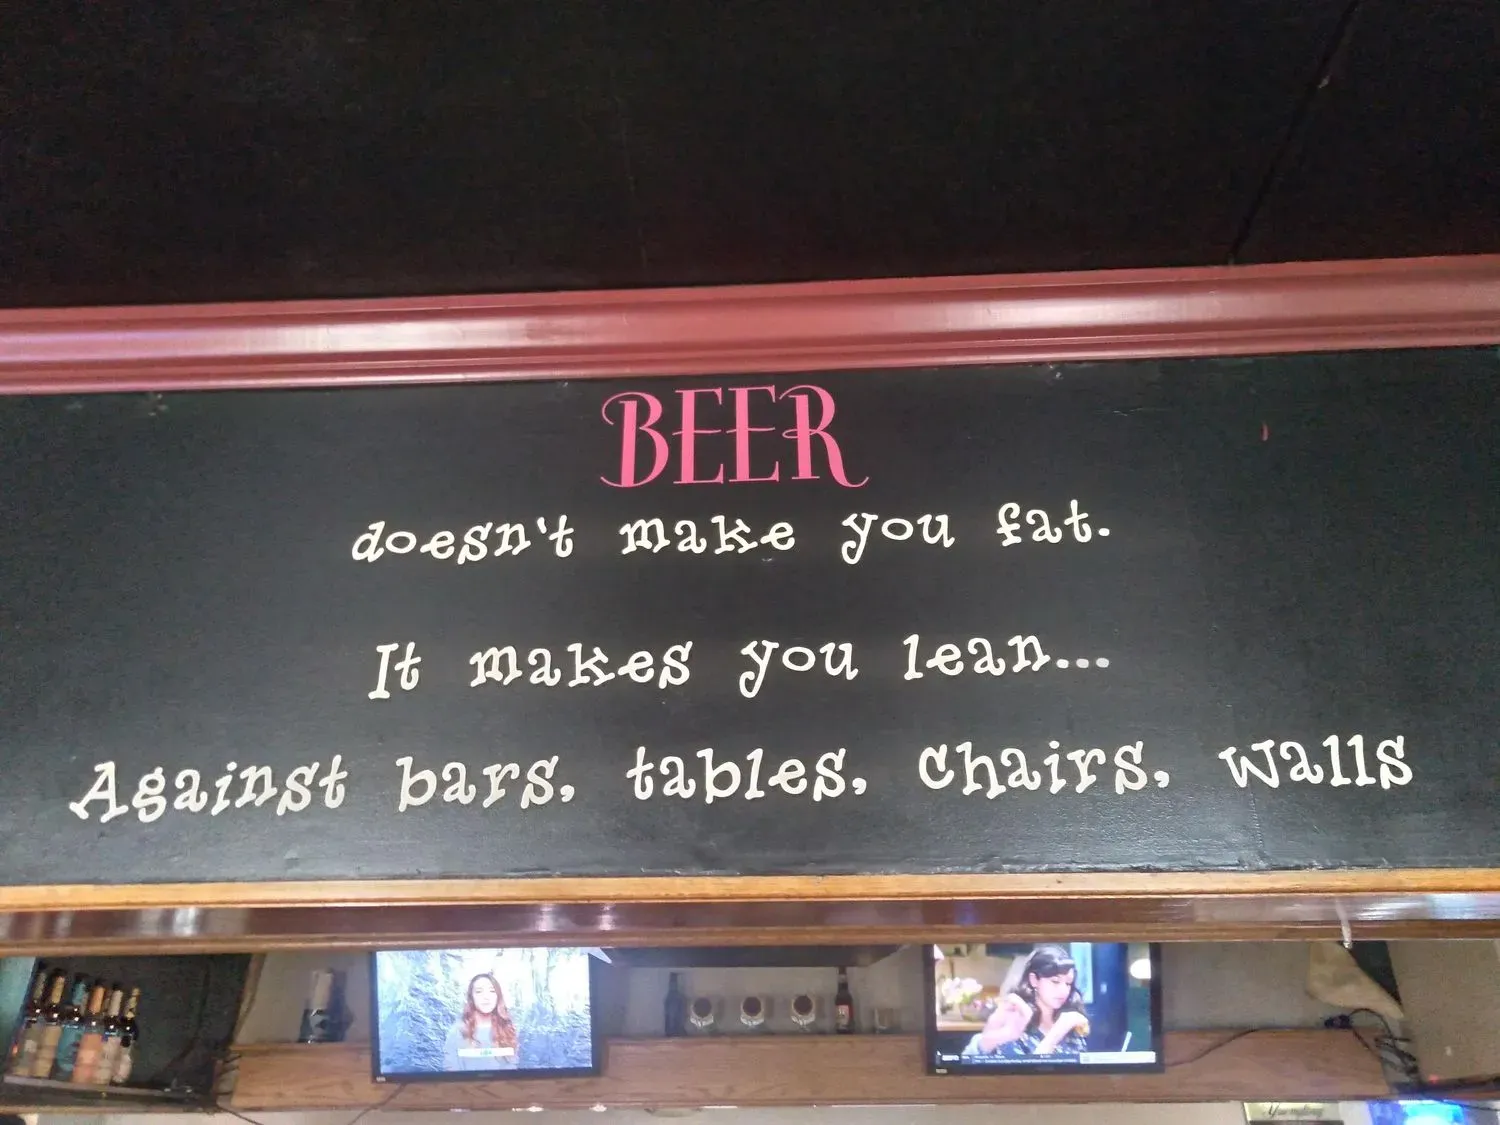 BEER
doesn't make you fat.
It makes you lean...
Against bars, tables, chairs, walls